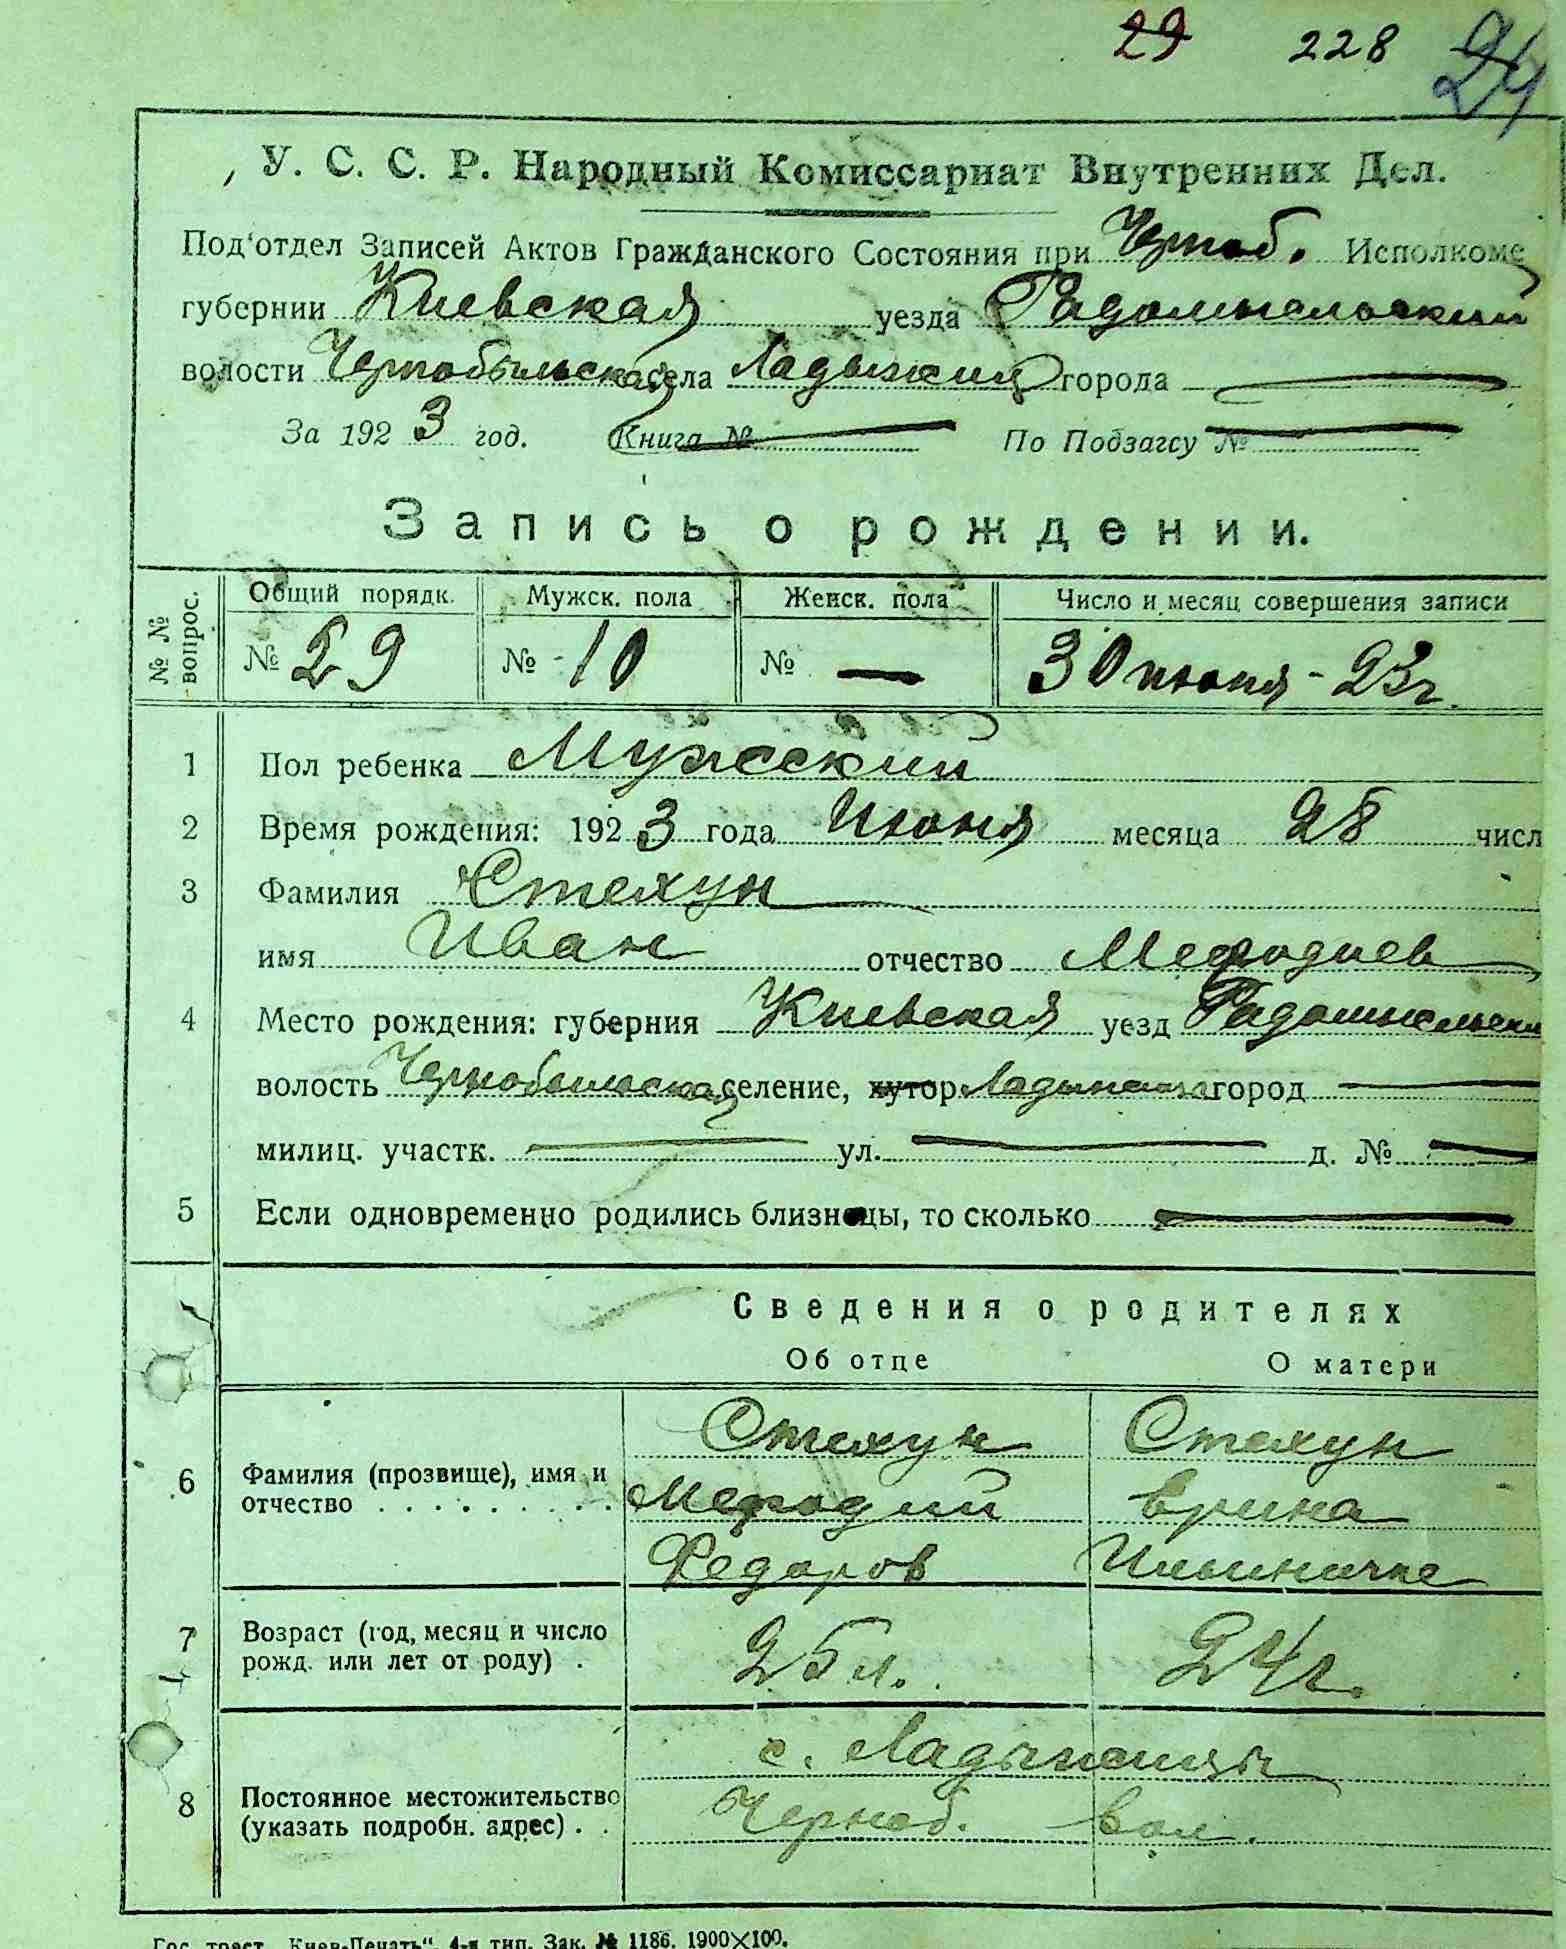 29 228 24
У. С. С. Р. Народный Комиссариат Внутренних Дел.
Под'отдел Записей Актов Гражданского Состояния при Черноб. Исполкоме
губернии Киевская уезда Радомысльский
волости Чернобыльская села Ладыжичи города
За 1923 год. Книга № По Подзагсу №
Запись о рождении.
№ № вопрос. Общий порядк. Мужск. пола Женск. пола Число и месяц совершения записи
№ 29 № 10 № — 30 июня - 23 г.
1 Пол ребенка Мужский
2 Время рождения: 1923 года Июня месяца 28 числ
3 Фамилия Стехун
имя Иван отчество Мефодиев
4 Место рождения: губерния Киевская уезд Радомысльски
волость Чернобыльская селение, хутор Ладыжичи город —
милиц. участк. — ул. — д. № —
5 Если одновременно родились близнецы, то сколько —
Сведения о родителях
Об отце О матери
Стехун Стехун
6 Фамилия (прозвище), имя и отчество . . . . . . . . . Мефодий Ирина
Федоров Ильинична
7 Возраст (год, месяц и число рожд. или лет от роду) . 25 л. 24 г.
с. Ладыжичи
8 Постоянное местожительство (указать подробн. адрес) . . Черноб. вол.
Гос. трест „Киев-Печать“, 4-я тип. Зак. № 1186. 1900×100.